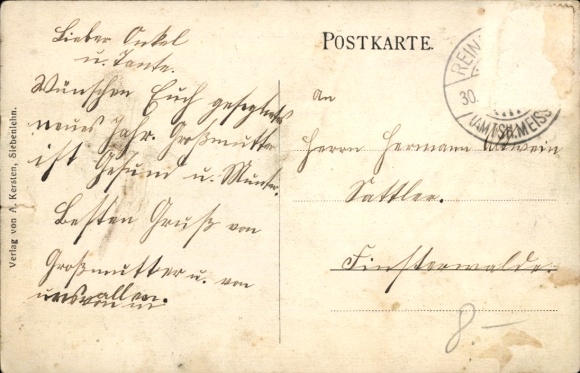 Lieber Onkel
u. Tante.
Wünschen Euch gesegnetes
neues Jahr. Großmutter
ist Gesund u. Munter.
Besten Gruß von
Großmutter u. von
uns allen.
POSTKARTE.
An
Herrn Hermann
Sattler.
Finsterwalde.
8 –
REIN
30.
(AMTSH. MEISS
Verlag von A. Kersten, Siebenlehn.